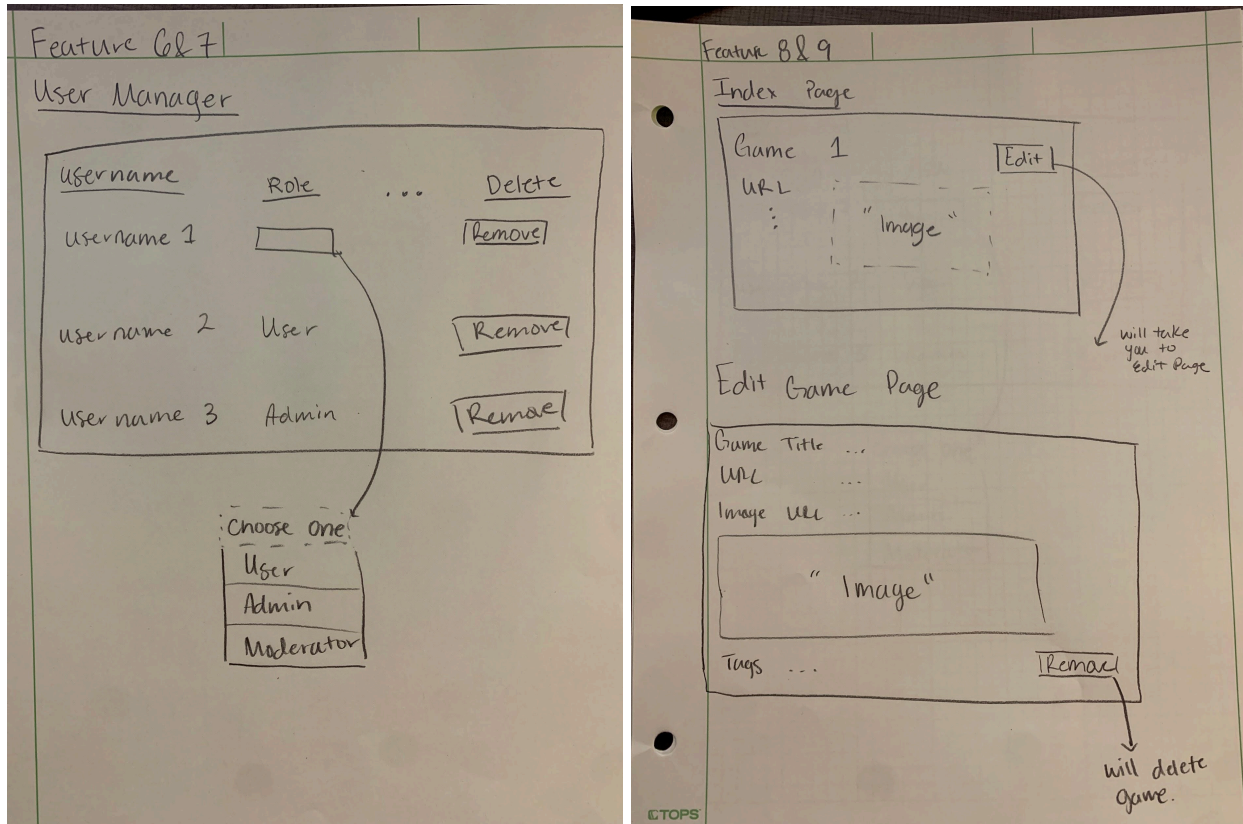 Feature 6&7
User Manager
Username Role ... Delete
Username 1 Remove
Username 2 User Remove
Username 3 Admin Remove
Choose one
User
Admin
Moderator
Feature 8&9
Index Page
Game 1 Edit
URL
"Image"
will take
you to
Edit Page
Edit Game Page
Game Title ...
URL ...
Image URL ...
"Image"
Tags ... Remove
will delete
game.
TOPS